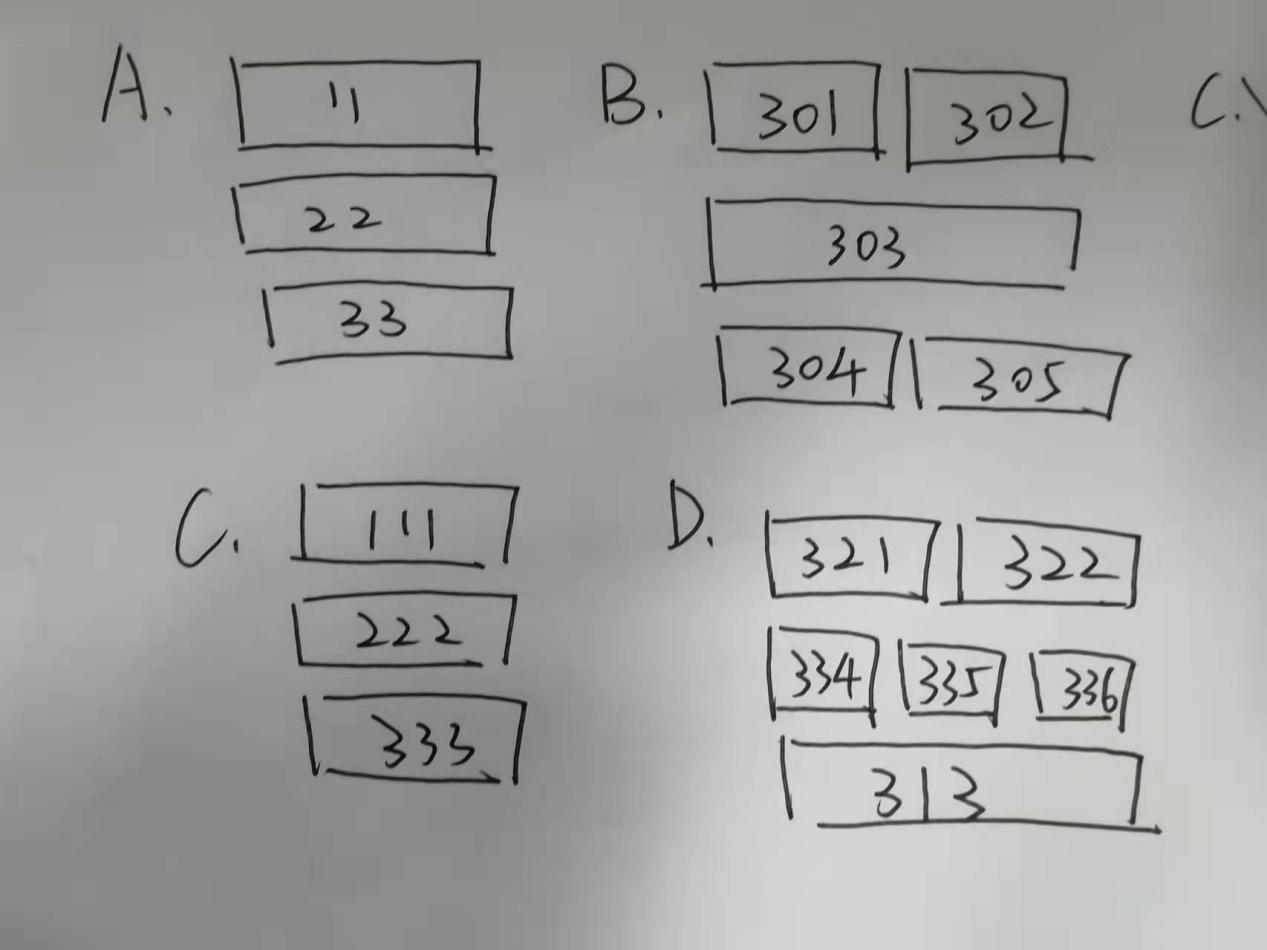 A. 11
22
33
B. 301 302
303
304 305
C.
C. 111
222
333
D. 321 322
334 335 336
313